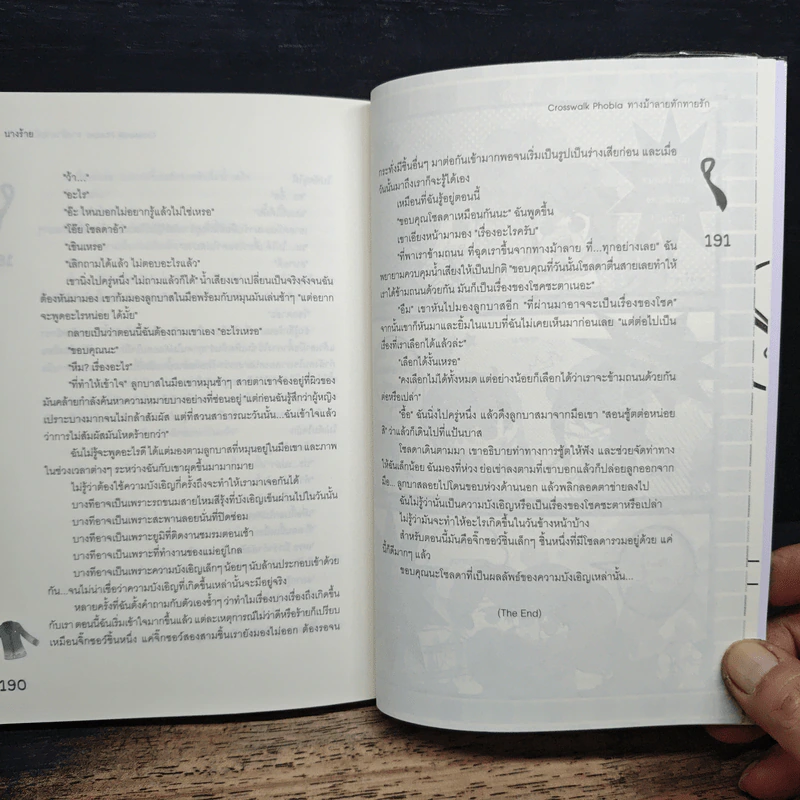 นางร้าย
"ว้า..."
"อะไร"
"อ๊ะ ไหนบอกไม่อยากรู้แล้วไม่ใช่เหรอ"
"โอ๊ย โซลดาอ้า"
"เชินเหรอ"
"เลิกถามได้แล้ว ไม่ตอบอะไรแล้ว"
เขานิ่งไปครู่หนึ่ง "ไม่ถามแล้วก็ได้" น้ำเสียงเขาเปลี่ยนเป็นจริงจังจนฉัน
ต้องหันมามอง เขาก้มมองลูกบาสในมือพร้อมกับหมุนมันเล่นช้าๆ "แต่อยาก
จะพูดอะไรหน่อย ได้มั้ย"
กลายเป็นว่าตอนนี้ฉันต้องถามเขาเอง "อะไรเหรอ"
"ขอบคุณนะ"
"หืม? เรื่องอะไร"
"ที่ทำให้เข้าใจ" ลูกบาสในมือเขาหมุนช้าๆ สายตาเขาจ้องอยู่ที่ผิวของ
มันคล้ายกำลังค้นหาความหมายบางอย่างที่ซ่อนอยู่ "แต่ก่อนฉันรู้สึกว่าผู้หญิง
เปราะบางมากจนไม่กล้าสัมผัส แต่ที่สวนสาธารณะวันนั้น...ฉันเข้าใจแล้ว
ว่าการไม่สัมผัสมันโหดร้ายกว่า"
ฉันไม่รู้จะพูดอะไรดี ได้แต่มองตามลูกบาสที่หมุนอยู่ในมือเขา และภาพ
ในช่วงเวลาต่างๆ ระหว่างฉันกับเขาผุดขึ้นมามากมาย
ไม่รู้ว่าต้องใช้ความบังเอิญกี่ครั้งถึงจะทำให้เรามาเจอกันได้
บางทีอาจเป็นเพราะรถขนมสายไหมสีรุ้งที่บังเอิญเข็นผ่านไปในวันนั้น
บางทีอาจเป็นเพราะสะพานลอยนั่นที่ปิดซ่อม
บางทีอาจเป็นเพราะยูมิที่ติดงานชมรมตอนเช้า
บางทีอาจเป็นเพราะที่ทำงานของแม่อยู่ไกล
บางทีอาจเป็นเพราะความบังเอิญเล็กๆ น้อยๆ นับล้านประกอบเข้าด้วย
กัน...จนไม่น่าเชื่อว่าความบังเอิญที่เกิดขึ้นเหล่านั้นจะมีอยู่จริง
หลายครั้งที่ฉันตั้งคำถามกับตัวเองซ้ำๆ ว่าทำไมเรื่องบางเรื่องถึงเกิดขึ้น
กับเรา ตอนนี้ฉันเริ่มเข้าใจมากขึ้นแล้ว แต่ละเหตุการณ์ไม่ว่าดีหรือร้ายก็เปรียบ
เหมือนจิ๊กซอว์ชิ้นหนึ่ง แค่จิ๊กซอว์สองสามชิ้นเรายังมองไม่ออก ต้องรอจน
190
Crosswalk Phobia ทางม้าลายทักทายรัก
กระทั่งมีชิ้นอื่นๆ มาต่อกันเข้ามากพอจนเริ่มเป็นรูปเป็นร่างเสียก่อน และเมื่อ
วันนั้นมาถึงเราก็จะรู้ได้เอง
เหมือนที่ฉันรู้อยู่ตอนนี้
"ขอบคุณโซลดาเหมือนกันนะ" ฉันพูดขึ้น
เขาเอียงหน้ามามอง "เรื่องอะไรครับ"
"ที่พาเราข้ามถนน ที่ฉุดเราขึ้นจากทางม้าลาย ที่...ทุกอย่างเลย" ฉัน
พยายามควบคุมน้ำเสียงให้เป็นปกติ "ขอบคุณที่วันนั้นโซลดาตื่นสายเลยทำให้
เราได้ข้ามถนนด้วยกัน มันก็เป็นเรื่องของโชคชะตาเนอะ"
"อืม" เขาหันไปมองลูกบาสอีก "ที่ผ่านมาอาจจะเป็นเรื่องของโชค"
จากนั้นเขาก็หันมาและยิ้มในแบบที่ฉันไม่เคยเห็นมาก่อนเลย "แต่ต่อไปเป็น
เรื่องที่เราเลือกได้แล้วล่ะ"
191
"เลือกได้งั้นเหรอ"
"คงเลือกไม่ได้ทั้งหมด แต่อย่างน้อยก็เลือกได้ว่าเราจะข้ามถนนด้วยกัน
ต่อหรือเปล่า"
"อื้อ" ฉันนิ่งไปครู่หนึ่ง แล้วดึงลูกบาสมาจากมือเขา "สอนชู้ตต่อหน่อย
สิ" ว่าแล้วก็เดินไปที่แป้นบาส
โซลดาเดินตามมา เขาอธิบายท่าทางการชู้ตให้ฟัง และช่วยจัดท่าทาง
ให้ฉันเล็กน้อย ฉันมองที่ห่วง ย่อเข่าลงตามที่เขาบอกแล้วก็ปล่อยลูกออกจาก
มือ... ลูกบาสลอยไปโดนขอบห่วงด้านนอก แล้วพลิกลอดตาข่ายลงไป
ฉันไม่รู้ว่านั่นเป็นความบังเอิญหรือเป็นเรื่องของโชคชะตาหรือเปล่า
ไม่รู้ว่ามันจะทำให้อะไรเกิดขึ้นในวันข้างหน้าบ้าง
สำหรับตอนนี้มันคือจิ๊กซอว์ชิ้นเล็กๆ ชิ้นหนึ่งที่มีโซลดารวมอยู่ด้วย แค่
นี้ก็ดีมากๆ แล้ว
ขอบคุณนะโซลดาที่เป็นผลลัพธ์ของความบังเอิญเหล่านั้น...
(The End)